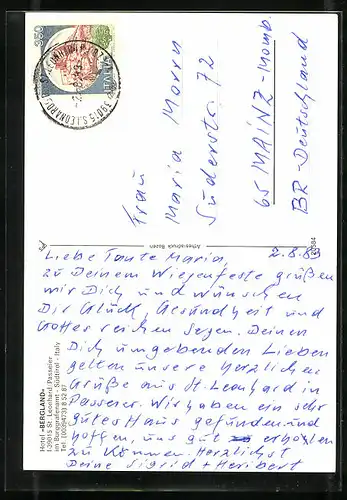 350
39015 S. LEONARDO
Frau
Maria Morra
Süderstr. 72
65 MAINZ-Momb.
BR-Deutschland
Athesiadruck Bozen
Hotel »BERGLAND«
I-39015 St. Leonhard/Passeier
im Burggrafenamt - Südtirol - Italy
2.8.83
Liebe Tante Maria,
zu Deinem Wiegenfeste grüßen
wir Dich und wünschen
Dir Glück, Gesundheit und
Gottes reichen Segen. Deinen
Dich umgebenden Lieben
gelten unsere herzlichen
Grüße aus St. Leonhard in
Passeier. Wir haben ein sehr
gutes Haus gefunden und
hoffen, uns gut erholen
zu können. Herzlichst
Deine Sigrid + Heribert